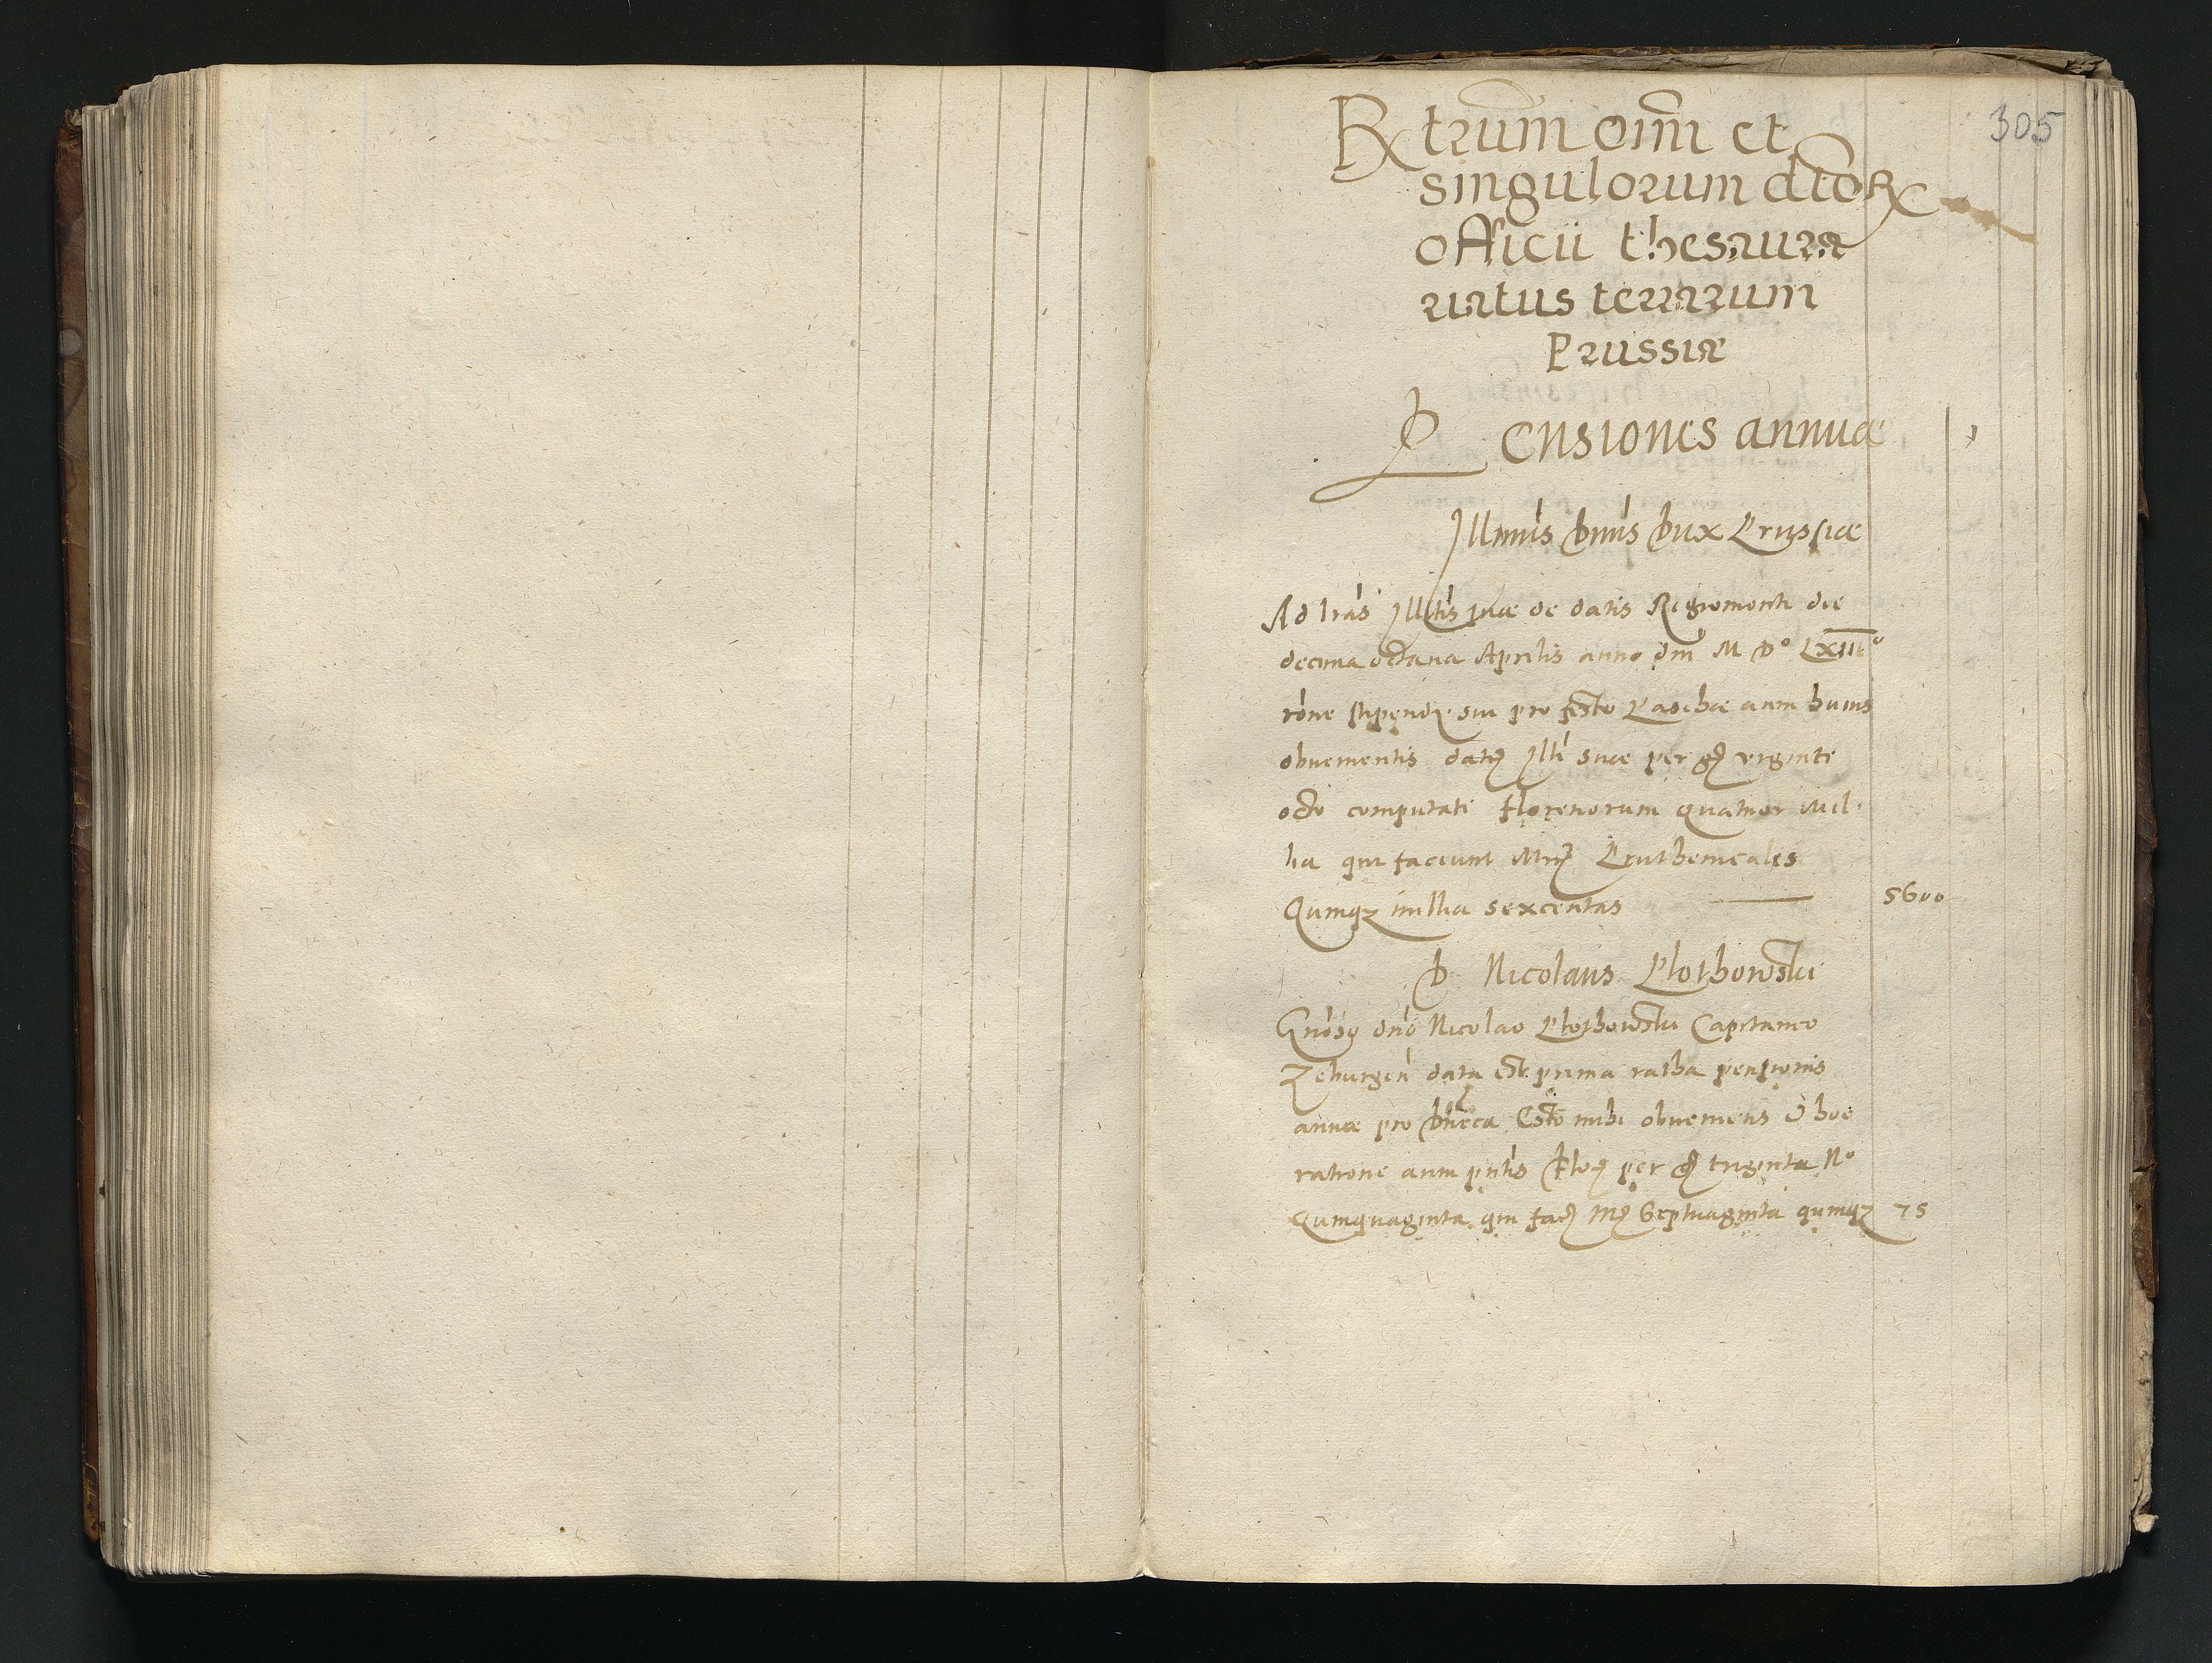 305
Rtrum oim et
singulorum dictoR
officii thesaura
riatus terrarum
Prussiae
Pensiones annuae
Illmus Dnus Dux Prussiae
Ad lras Illtis suae de datis Regiomonti die
decima octava Aprilis anno dm M D° LXIII°
rone stipendy sui pro festo Paschae anni huius
obuenientis Illti suae per gr viginti
octo computati florenorum quatuor mil
lia qui faciunt Mrc Pruthenicales
Quinqz millia sexcentas 5600
D Nicolaus Plothowski
Gnoso dno Nicolao Plothowski Capitaneo
Zchurgen data est prima ratha pensionis
annuae pro Esto mihi obueniens
ratione anni pntis per gr triginta N°
Quinquaginta qui fac Septuaginta quinqz 75